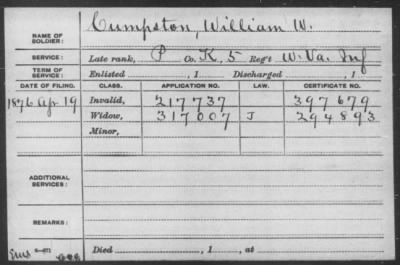 NAME OF SOLDIER: Cumpston, William W.
SERVICE: Late rank, P Co. K, 5 Reg't W. Va. Inf
TERM OF SERVICE: Enlisted , 1 Discharged , 1
DATE OF FILING. CLASS. APPLICATION NO. LAW. CERTIFICATE NO.
1876 Apr 19 Invalid, 217737 397679
Widow, 317007 J 294893
Minor,
ADDITIONAL SERVICES:
REMARKS:
Died , 1 , at